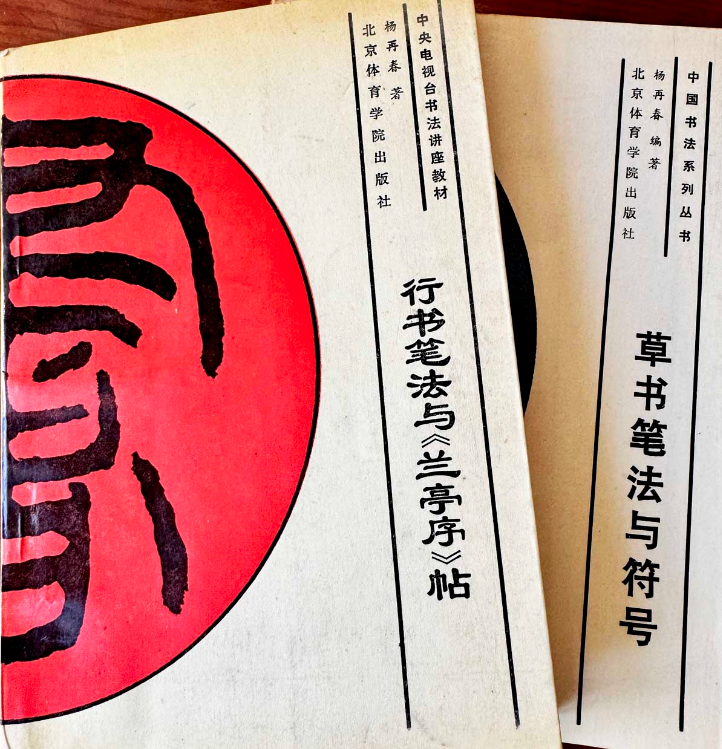 中央电视台书法讲座教材
杨再春 著
北京体育学院出版社
行书笔法与《兰亭序》帖
中国书法系列丛书
杨再春 编著
北京体育学院出版社
草书笔法与符号